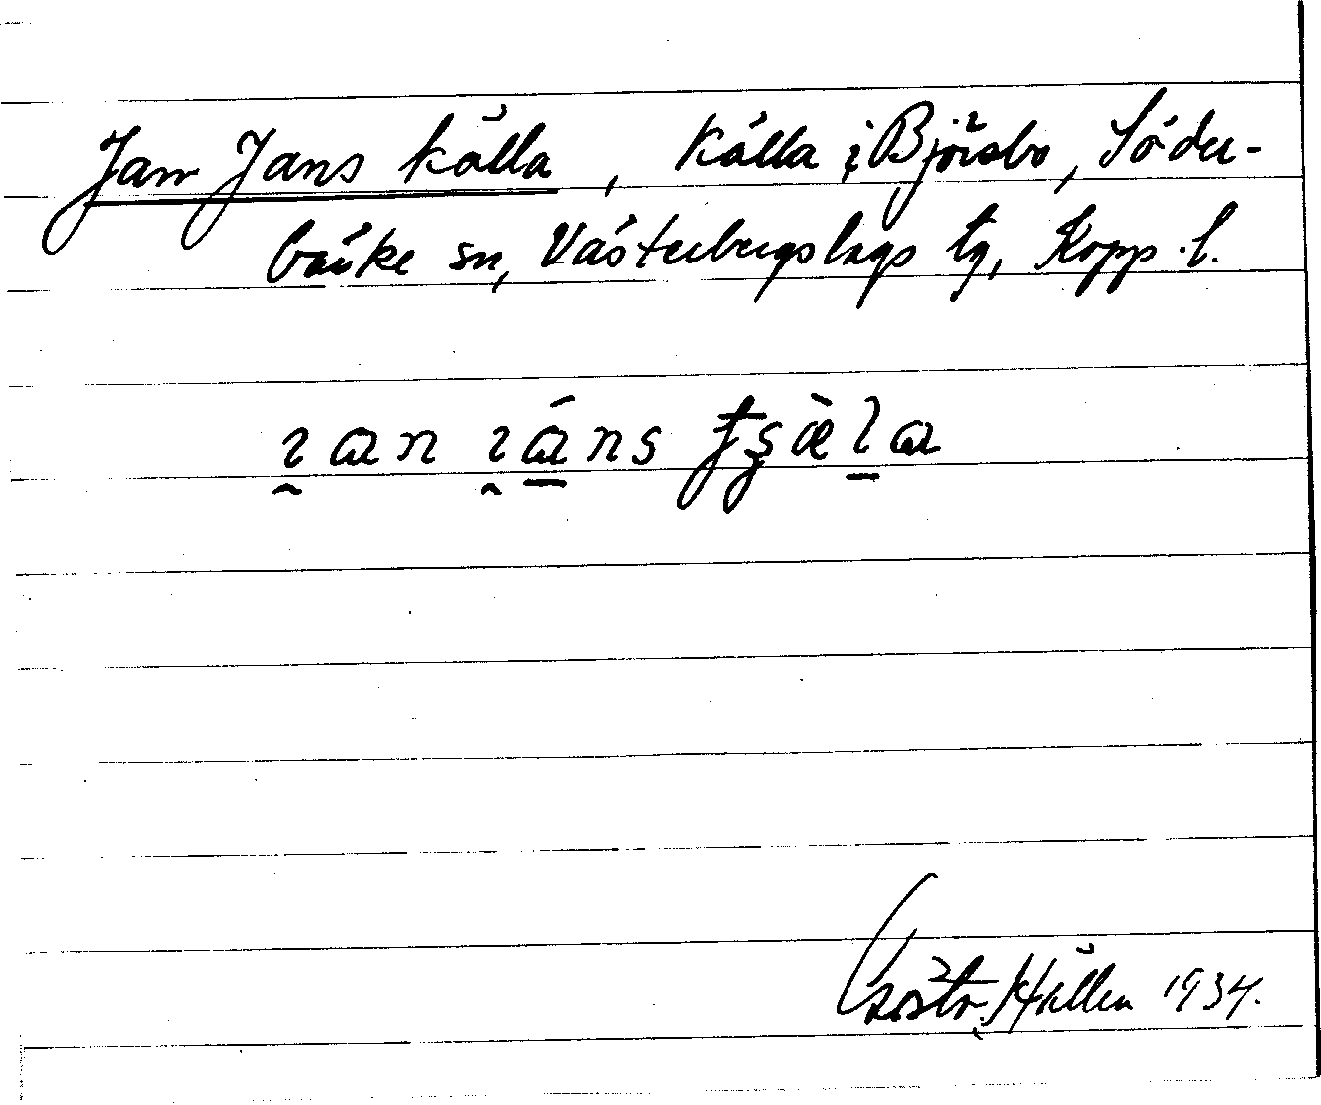 Jan Jans källa, källa i Björsbo, Söder-
bärke sn, Västerbergslags tg, Kopp. l.
ı̯an ı̯áns tʂæ̀la
Källén 1934.